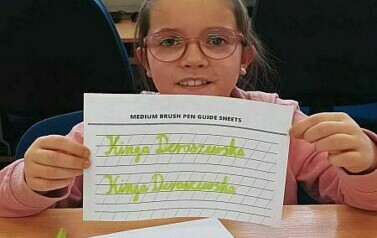 MEDIUM BRUSH PEN GUIDE SHEETS
Kinga Deroszewska
Kinga Deroszewska